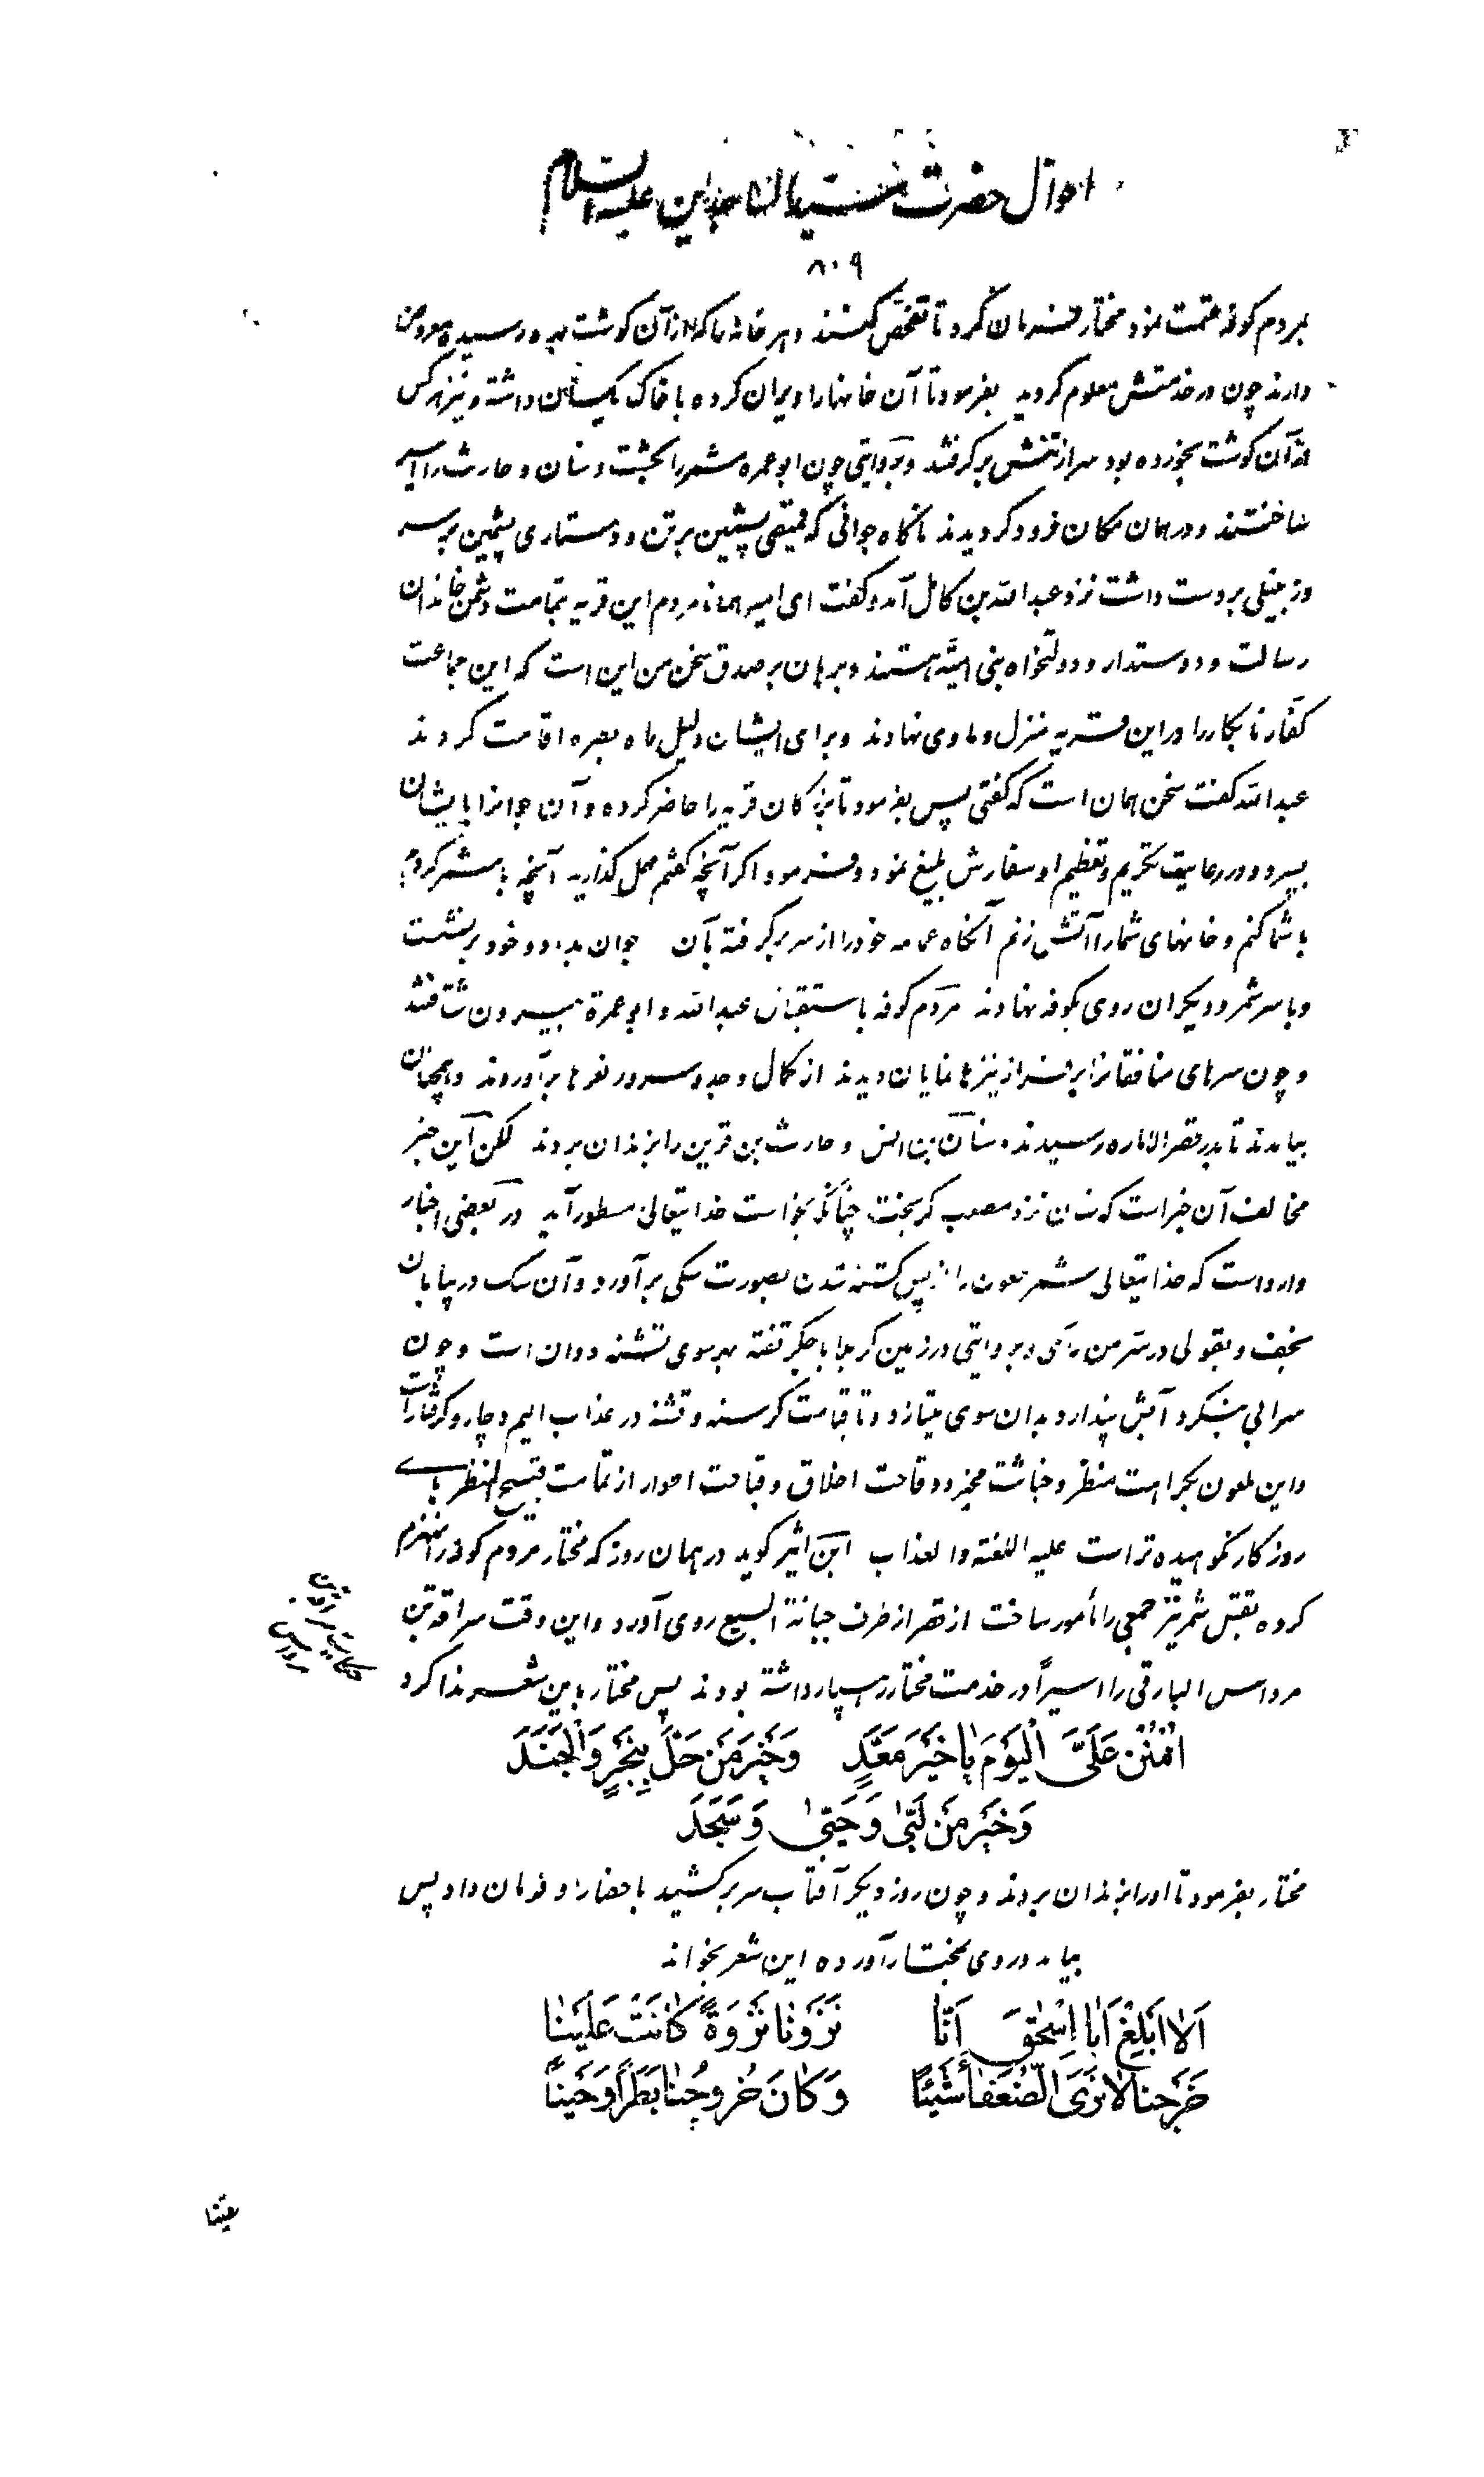 احوال حضرت سید الساجدین علیه السلام
۸۰۹
بمردم کوفه قسمت نمود مختار فرمان کرد تا تفحص کنند و هر خانه را که از آن گوشت بهره رسیده معروض
دارند چون در خدمتش معلوم گردید بفرمود تا آن خانها را ویران کرده با خاک یکسان داشته و نیز هر کس
از آن گوشت بخورده بود سر از تنش بر گرفتند و بروایتی چون ابو عمره شمر را بکشت و سنان و حارث را اسیر
ساختند و در همان مکان فرود گردیدند ناگاه جوانی که قمیصی پشمین بر تن و دستاری پشمین بر سر
و زنبیلی بر دست داشت نزد عبدالله بن کامل آمد و گفت ای امیر همانا مردم این قریه بتمامت دشمن خاندان
رسالت و دوستدار و دولتخواه بنی امیه هستند و برهان بر صدق سخن من این است که این جماعت
کفار نابکار را در این قریه منزل و ماوی نهادند و برای ایشان دلیل راه بصره اقامت کردند
عبدالله گفت سخن همان است که گفتی پس بفرمود تا بزرگان قریه را حاضر کرده و آن جوانرا بایشان
بسپرد و در رعایت تکریم و تعظیم او سفارش بلیغ نمود و فرمود اگر آنچه گفتم مهمل گذارید آنچه با شمر کردم
با شما کنم و خانهای شما را آتش زنم آنگاه عمامه خود را از سر بر گرفته بآن جوان بداد و خود بر نشست
و با سر شمر و دیگران روی بکوفه نهادند مردم کوفه باستقبال عبدالله و ابو عمرة بیرون شتافتند
و چون سرهای منافقانرا بر فراز نیزها نمایان دیدند از کمال وجد و سرور نعرها برآوردند و همچنان
بیامدند تا بدر قصر الاماره رسیدند و سنان بن انس و حارث بن قرین را بزندان بردند لکن این خبر
مخالف آن خبر است که سنان نزد مصعب گریخت چنانکه بخواست خدایتعالی مسطور آید در بعضی اخبار
وارد است که خدایتعالی شمر ملعون را از پس کشته شدن بصورت سگی بر آورد و آن سگ در بیابان
نجف و بقولی در سر من رای و بروایتی در زمین کربلا با جگر تفته بهر سوی تشنه دوان است و چون
سرابی بنگرد آبش پندارد و بدان سوی میتازد و تا قیامت گرسنه و تشنه در عذاب الیم دچار و گرفتار است
و این ملعون بکراهت منظر و خباثت مخبر و وقاحت اخلاق و قباحت اطوار از تمامت قبیح المنظر های
روزگار نکوهیده تر است علیه اللعنة والعذاب ابن اثیر گوید در همان روز که مختار مردم کوفه را منهزم
کرده بقتل شمر نیز جمعی را مأمور ساخت از قصر از طرف جبانة السبیع روی آورد و این وقت سراقة بن
مرداس البارقی را اسیراً در خدمت مختار رهسپار داشته بودند پس مختار باین شعر ندا کرد
امْنُنْ عَلَیَّ الْیَوْمَ یا خَیْرَ مَعَدٍّ وَخَیْرَ مَنْ حَلَّ بِحِجْرٍ وَالْجَنَدَ
وَخَیْرَ مَنْ لَبّیٰ وَحَیّیٰ وَسَجَدَ
مختار بفرمود تا او را بزندان بردند و چون روز دیگر آفتاب سر بر کشید باحضار او فرمان داد پس
بیامد و روی بمختار آورده این شعر بخواند
اَلا اَبْلِغْ اَبا اِسْحٰقَ اَنّا نَزَوْنا نَزْوَةً کانَتْ عَلَیْنا
خَرَجْنا لا نَرَی الضُّعَفاءَ شَیْئاً وَکانَ خُرُوجُنا بَطَراً وَحَیْناً